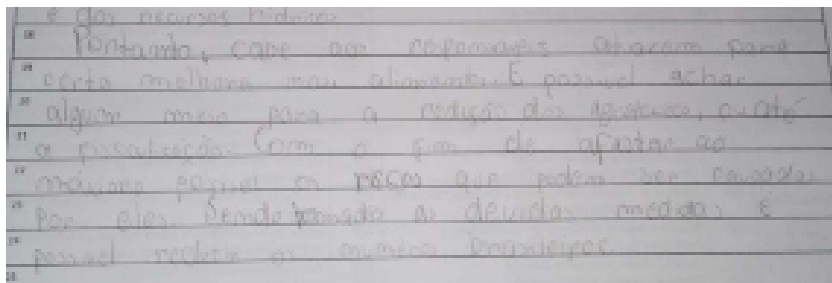 e dos recursos hídricos
Portanto, cabe aos responsáveis atuarem para
certa melhora nos alimentos. É possível achar
algum meio para a redução dos agrotóxicos, ou até
a fiscalização. Com o fim de afastar ao
máximo possível os riscos que podem ser causados
por eles. Sendo tomada as devidas medidas é
possível reduzir os números brasileiros.